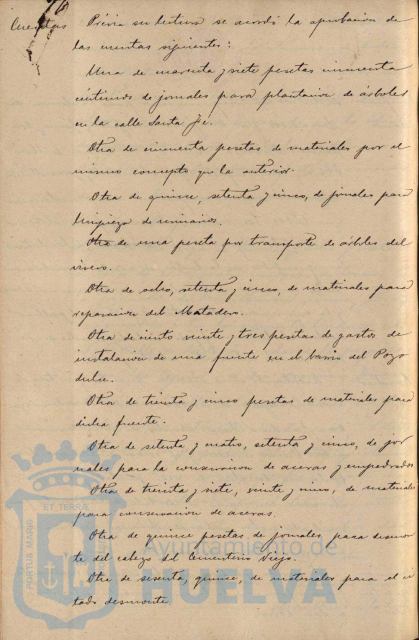 Cuentas
Prévia su lectura se acordó la aprobacion de
las cuentas siguientes:
Una de cuarenta y siete pesetas cincuenta
céntimos de jornales para plantacion de árboles
en la calle Santa Fé.
Otra de cincuenta pesetas de materiales por el
mismo concepto que la anterior.
Otra de quince, setenta y cinco, de jornales para
limpieza de urinarios.
Otra de una peseta por transporte de árboles del
vivero.
Otra de ocho, setenta y cinco, de materiales para
reparacion del Matadero.
Otra de ciento veinte y tres pesetas de gastos de
instalacion de una fuente en el barrio del Pozo
dulce.
Otra de treinta y cinco pesetas de materiales para
dicha fuente.
Otra de setenta y cuatro, setenta y cinco, de jor
nales para la conservacion de aceras y empedrados
Otra de treinta y siete, veinte y cinco, de materiales
para conservacion de aceras.
Otra de quince pesetas de jornales, para desmon
te del cabezo del Cementerio Viejo.
Otra de sesenta, quince, de materiales para el ci
tado desmonte.
PORTUS MARIS
ET TERRÆ
Ayuntamiento de
HUELVA